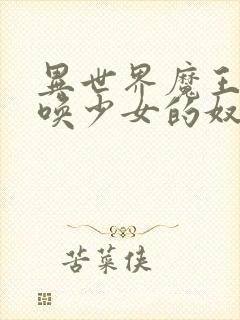 異世界魔王
喚少女的奴
苦菜侠